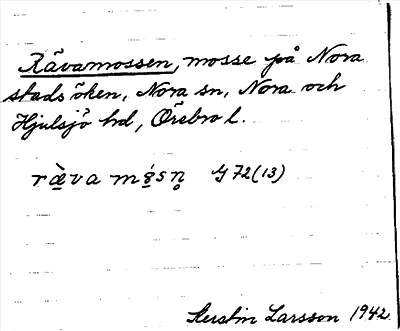 Rävamossen, mosse på Nora
stads öken, Nora sn, Nora och
Hjulsjö hd, Örebro l.
Kerstin Larsson 1942